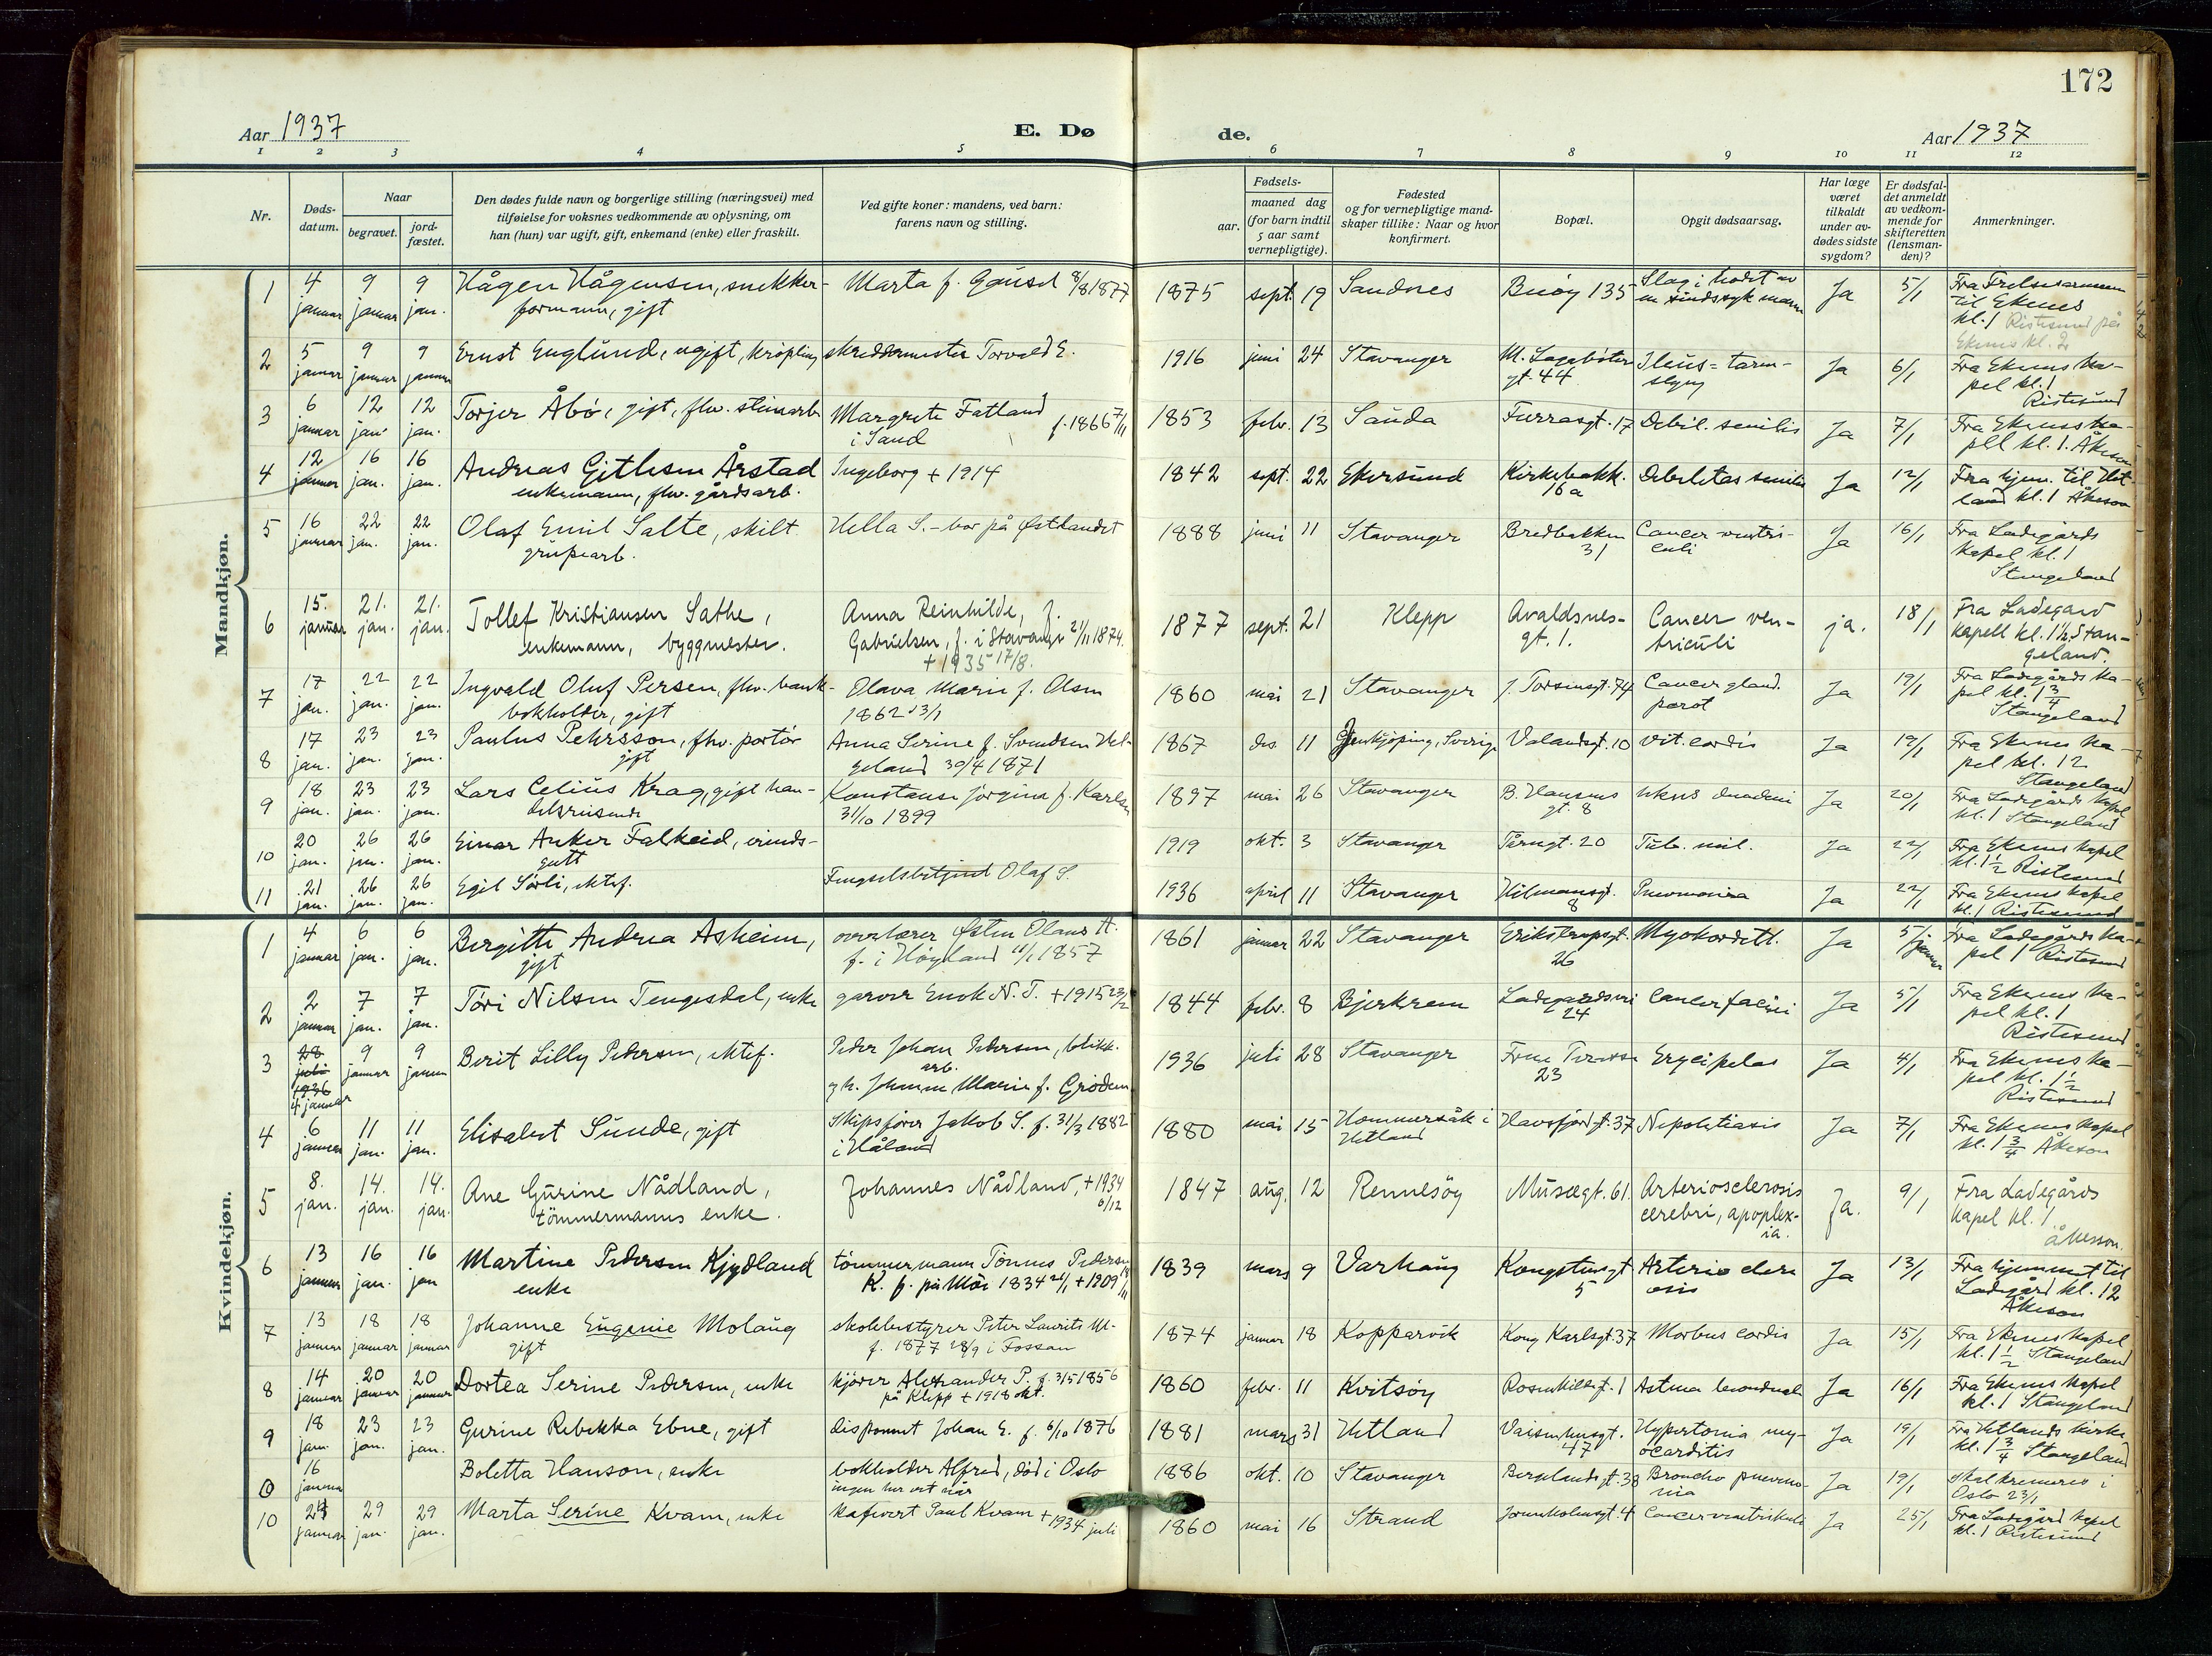 172
Aar 1937
E. Dø
de.
Aar 1937
1 2 3 4 5 6 7 8 9 10 11 12
Nr.
Døds-
datum.
Naar
begravet.
jord-
fæstet.
Den dødes fulde navn og borgerlige stilling (næringsvei) med
tilføielse for voksnes vedkommende av oplysning, om
han (hun) var ugift, gift, enkemand (enke) eller fraskilt.
Ved gifte koner: mandens, ved barn:
farens navn og stilling.
Fødsels-
aar.
maaned dag
(for barn indtil
5 aar samt
vernepligtige).
Fødested
og for vernepligtige mand-
skaper tillike: Naar og hvor
konfirmert.
Bopæl.
Opgit dødsaarsag.
Har læge
været
tilkaldt
under av-
dødes sidste
sygdom?
Er dødsfal-
det anmeldt
av vedkom-
mende for
skifteretten
(lensman-
den)?
Anmerkninger.
Mandkjøn.
1 4 januar 9 januar 9 jan. Hågen Hågensen, snekker-
formann, gift
Marta f. Gausel 8/8 1877
1875 sept. 19 Sandnes Buøy 135 Slag i hodet av
en sindssyk mann
Ja 5/1 Fra Frelsesarmeen
til Ekenes
kl. 1 Ristesund på
Ekenes kl. 2
2 5 januar 9 januar 9 januar Ernst Englund, ugift, krøpling skreddermester Torvald E.
1916 juni 24 Stavanger M. Lagabøter
gt. 44 Ileus = tarm-
slyng Ja 6/1 Fra Ekenes ka-
pel kl. 1
Ristesund
3 6 januar 12 jan. 12 jan. Torjer Åbø, gift, fhv. stenarb. Margrete Fatland
i Sand f. 1866 7/11
1853 febr. 13 Sauda Furrasgt. 17 Debil. senilis Ja 7/1 Fra Ekenes ka-
pell kl. 1. Åkeson
4 12 januar 16 jan. 16 jan. Andreas Gitlesen Årstad
enkemann, fhv. gårdsarb.
Ingeborg + 1914
1842 sept. 22 Ekersund Kirkebakk.
16a Debilitas senilis Ja 12/1 Fra hjem. til Het-
land kl. 1 Åkeson
5 16 januar 22 jan. 22 jan. Olaf Emil Salte, skilt
grubearb.
Hella S. - bor på Østlandet
1888 juni 11 Stavanger Bredbakken
31 Cancer ventri-
culi Ja 16/1 Fra Ladegårds
kapel kl. 1
Stangeland
6 15. januar 21. jan. 21. jan. Tollef Kristiansen Sathe,
enkemann, byggmester.
Anna Reinhilde, f.
Gabrielsen, f. i Stavanger 21/11 1874.
+ 1935 17/8.
1877 sept. 21 Klepp Avaldsnes-
gt. 1. Cancer ven-
triculi ja. 18/1 Fra Ladegard
kapell kl. 1½. Stan-
geland.
7 17 jan. 22 jan. 22 jan. Ingvald Oluf Persen, fhv. bank-
bokholder, gift
Olava Marie f. Olsen
1862 23/1
1860 mai 21 Stavanger J. Torsensgt. 74 Cancer gland.
parot Ja 19/1 Fra Ladegårds ka-
pel kl. 1 3/4
Stangeland
8 17 jan. 23 jan. 23 jan. Paulus Pehrsson, fhv. portør
gift
Anna Serine f. Svendsen Hel-
geland 30/4 1871
1867 des. 11 Jønkjøping, Sverige Volandsgt. 10 vit. cordis Ja 19/1 Fra Ekenes ka-
pel kl. 12
Stangeland
9 18 jan. 23 jan. 23 jan. Lars Celius Krag, gift han-
delsreisende
Konstanse Jørgine f. Karlsen
31/10 1899
1897 mai 26 Stavanger B. Hansens
gt. 8 ulcus duodeni Ja 20/1 Fra Ladegårds kapel
kl. 1 Stangeland
10 20 jan. 26 jan. 26 jan. Einar Anker Falkeid, erinds-
gutt
1919 okt. 3 Stavanger Tårngt. 20 Tub. mil. Ja 22/1 Fra Ekenes kapel
kl. 1½ Ristesund
11 21 jan. 26 jan. 26 jan. Egil Sørli, ektef.
Fengselsbetjent Olaf S.
1936 april 11 Stavanger Hilmansgt.
8 Pneumonia Ja 22/1 Fra Ekenes kapel
kl. 1 Ristesund
Kvindekjøn.
1 4 januar 6 jan. 6 jan. Birgitte Andrea Asheim,
gift
overlærer Østen Olaus A.
f. i Høyland 11/1 1857
1861 januar 22 Stavanger Erikstrupsgt.
26 Myokordett. Ja 5/januar Fra Ladegårds ka-
pel 1 Ristesund
2 2 januar 7 jan. 7 jan. Tøri Nilsen Tengesdal, enke garver Enok N. T. + 1915 23/2
1844 febr. 8 Bjerkrem Ladegaardsvei
24 Cancer faciei Ja 5/1 Fra Ekenes ka-
pel kl. 1
Ristesund
3 28 juli 1936 4 januar 9 januar 9 januar Berit Lilly Pedersen, ektef. Peder Johan Pedersen, blikk.
arb.
g. h. Johanne Marie f. Grødem
1936 juli 28 Stavanger Frue Terrasse
23 Erysipelas Ja 4/1 Fra Ekenes ka-
pel kl. 1½
Ristesund
4 6 januar 11 jan. 11 jan. Elisabet Sunde, gift
Skipsfører Jakob S. f. 31/3 1882
i Håland
1880 mai 15 Hommersåk i
Hetland Havsfjord gt. 37 Nepolitiasis Ja 7/1 Fra Ekenes kapel
kl. 1 3/4 Åkeson
5 8. jan. 14. jan. 14. jan. Ane Gurine Nådland,
tömmermanns enke.
Johannes Nådland, + 1934
6/12
1847 aug. 12 Rennesöy Musægt. 61. Arteriosclerosis
cerebri, apoplex-
ia. Ja. 9/1 Fra Ladegårds
kapel kl. 1
åkesson.
6 13 januar 16 jan. 16 jan Martine Pedersen Kjydland
enke
tømmermann Tønnes Pedersen
K. f. på Moi 1834 26/1 + 1909 14/11
1839 mars 9 Varhaug Kongstensgt
5 Arterio cler
osis Ja 13/1 Fra hjemmet til
Ladegård kl. 12
Åkeson
7 13 januar 18 januar 18 januar Johanne Eugenie Molaug
gift
skolebestyrer Peter Laurits M.-
f. 1877 28/9 i Fossan
1874 januar 18 Kopparvik Kong Karlsgt. 37 Morbus cordis Ja 15/1 Fra Ekenes kapel
kl. 1½ Stangeland
8 14 januar 20 januar 20 januar Dortea Serine Pedersen, enke
kjører Alexander P. f. 3/5 1856
på Klepp + 1918 okt.
1860 febr. 11 Kvitsøy Rosenkildegt. 1 Astma bronchiale Ja 16/1 Fra Ekenes kapel
kl. 1 Stangeland
9 18 jan. 23 jan. 23 jan. Gurine Rebekka Ebne, gift
disponent Johan E. f. 6/10 1876
1881 mars 31 Hetland Vaisenhusgt.
47 Hypertonia my-
ocarditis Ja 19/1 Fra Hetlands kirke
kl. 1 3/4 Stangeland
0 16 januar Boletta Hanson, enke
bokholder Alfred, død i Oslo
ingen her vet når
1886 okt. 10 Stavanger Bergelandsgt. 38 Broncho pneumo-
nia Ja 19/1 Skal kremeres i
Oslo 23/1
10 24 januar 29 jan. 29 jan. Marta Serine Kvam, enke
kafevert Paul Kvam + 1934 juli
1860 mai 16 Strand Jonnholmsgt. 4 Cancer ventriculi Ja 25/1 Fra Ladegård kapel
kl. 1 Ristesund